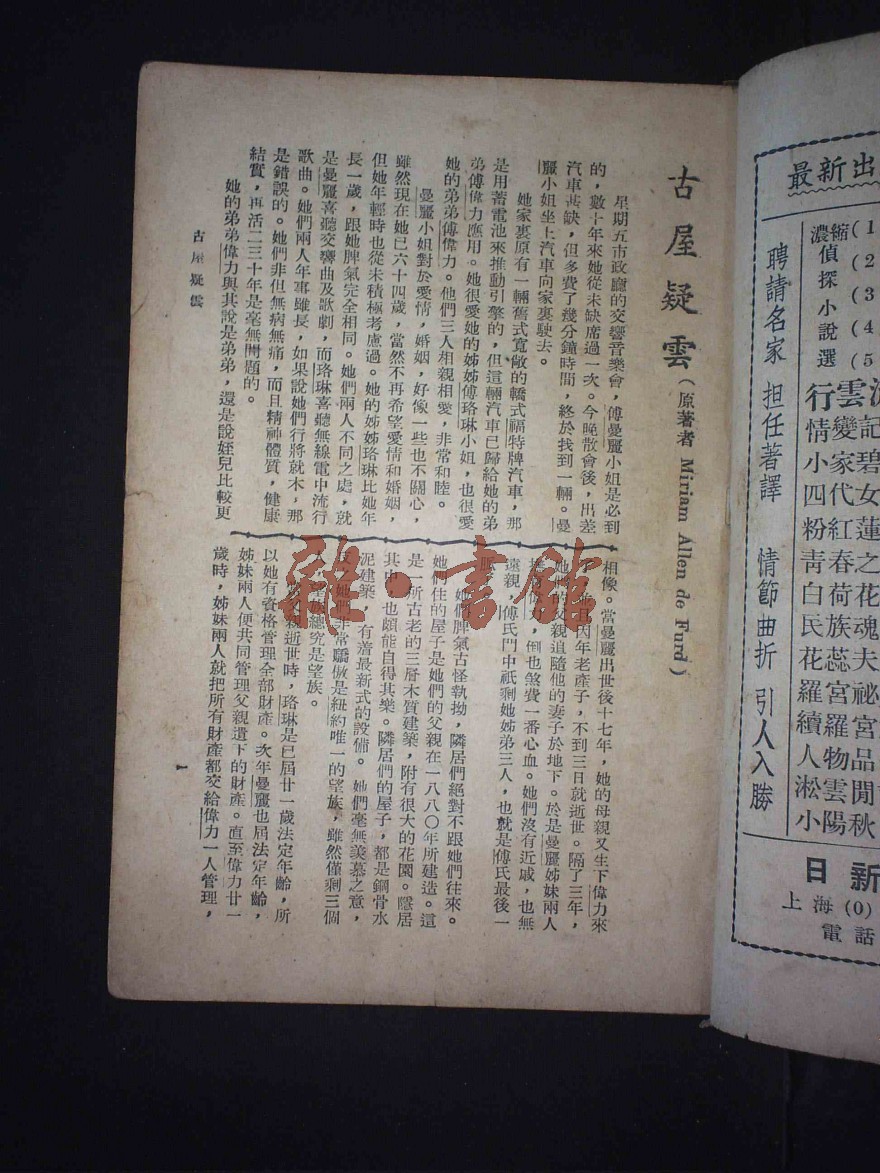 古屋疑雲(原著者 Miriam Allen de Furd)
星期五市政廳的交響音樂會,傅曼麗小姐是必到
的,數十年來她從未缺席過一次。今晚散會後,出差
汽車甚缺,但多費了幾分鐘時間,終於找到一輛。曼
麗小姐坐上汽車向家裏駛去。
她家裏原有一輛舊式寬敞的轎式福特牌汽車,那
是用蓄電池來推動引擎的,但這輛汽車已歸給她的弟
弟傅偉力應用。她很愛她的姊姊傅珞琳小姐,也很愛
她的弟弟傅偉力。他們三人相親相愛,非常和睦。
曼麗小姐對於愛情,婚姻,好像一些也不關心,
雖然現在她已六十四歲,當然不再希望愛情和婚姻,
但她年輕時也從未積極考慮過。她的姊姊珞琳比她年
長一歲,跟她脾氣完全相同。她們兩人不同之處,就
是曼麗喜聽交響曲及歌劇,而珞琳喜聽無線電中流行
歌曲。她們兩人年事雖長,如果說她們行將就木,那
是錯誤的。她們非但無病無痛,而且精神體質,健康
結實,再活二三十年是毫無問題的。
她的弟弟偉力與其說是弟弟,還是說姪兒比較更
相像。當曼麗出世後十七年,她的母親又生下偉力來
且因年老產子,不到三日就逝世。隔了三年,
她們的父親追隨他的妻子於地下。於是曼麗姊妹兩人
,倒也煞費一番心血。她們沒有近戚,也無
遠親,傅氏門中祇剩她姊弟三人,也就是傅氏最後一
她們脾氣古怪執拗,隣居們絕對不跟她們往來。
她們住的屋子是她們的父親在一八八〇年所建造。這
是一所古老的三層木質建築,附有很大的花園。隱居
其中,也頗能自得其樂。隣居們的屋子,都是鋼骨水
泥建築,有着最新式的設備。她們毫無羨慕之意,
她們非常驕傲是紐約唯一的望族,雖然僅剩三個
望族總究是望族。
父親逝世時,珞琳是已屆廿一歲法定年齡,所
以她有資格管理全部財產。次年曼麗也屆法定年齡,
姊妹兩人便共同管理父親遺下的財產。直至偉力廿一
歲時,姊妹兩人就把所有財產都交給偉力一人管理,
古屋疑雲
一
雜·書館
最新出
濃縮偵探小說選
(1
(2
(3
(4
(5
聘請名家 担任著譯 情節曲折 引人入勝
行雲
情變記
小家碧
四代女
粉紅蓮
靑春之
白荷花
民族魂
花蕊夫
羅宮祕
續羅宮
人物品
淞雲閒
小陽秋
日新
上海(0)
電話